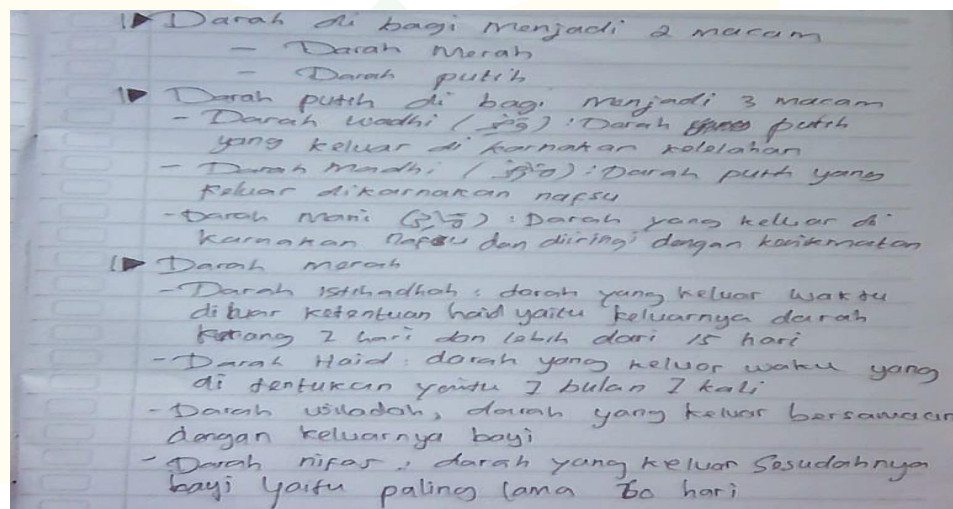 Darah di bagi menjadi 2 macam
- Darah Merah
- Darah putih
Darah putih di bagi menjadi 3 macam
- Darah wadhi ( ) : Darah putih
yang keluar di karnakan kelelahan
- Darah madhi ( ) : Darah putih yang
keluar dikarnakan nafsu
- Darah Mani ( ) : Darah yang keluar di
karnakan nafsu dan diiringi dengan kenikmatan
Darah merah
- Darah istihadhah : darah yang keluar waktu
diluar ketentuan haid yaitu keluarnya darah
kurang 1 hari dan lebih dari 15 hari
- Darah Haid : darah yang keluar waktu yang
di tentukan yaitu 1 bulan 1 kali
- Darah wiladah, darah yang keluar bersamaan
dengan keluarnya bayi
- Darah nifas : darah yang keluar Sesudahnya
bayi yaitu paling lama 60 hari